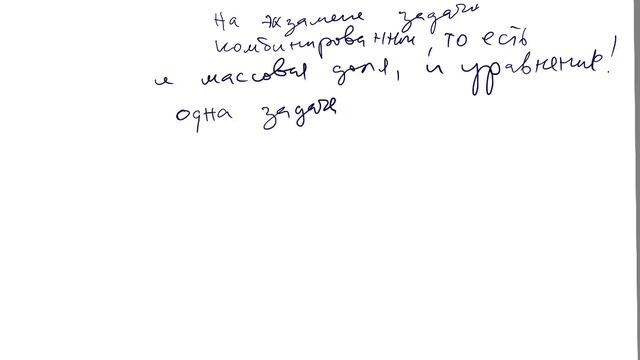 На экзамене задачи
комбинированные, то есть
и массовая доля, и уравнение!
одна задача